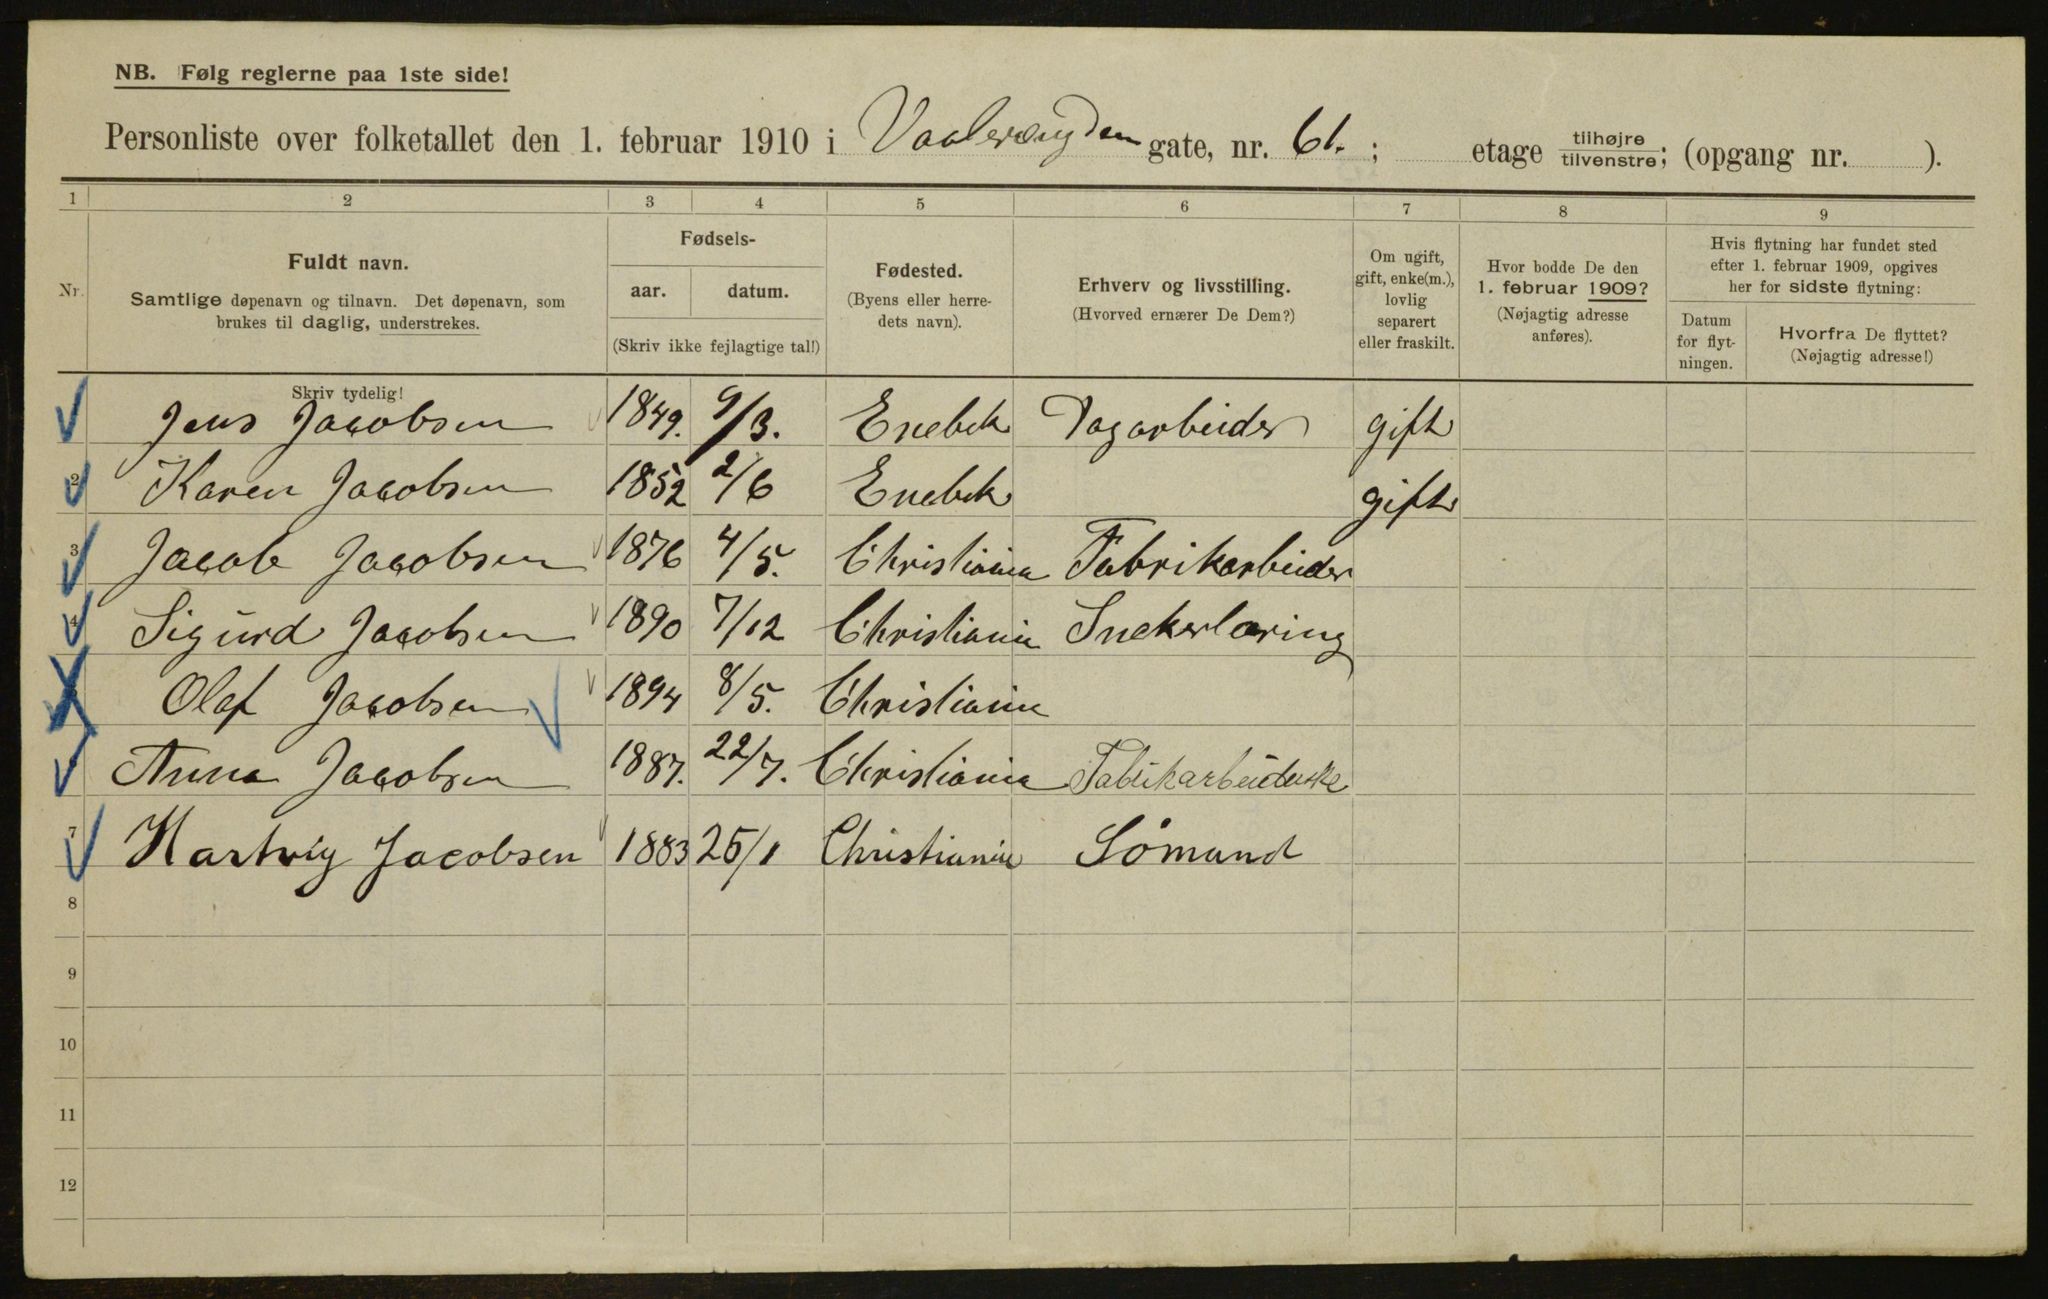 NB. Følg reglerne paa 1ste side!
Personliste over folketallet den 1. februar 1910 i Vaalerengden gate, nr. 61. ; etage tilhøjre/tilvenstre; (opgang nr. ).
1 2 3 4 5 6 7 8 9
Nr.
Fuldt navn.
Samtlige døpenavn og tilnavn. Det døpenavn, som
brukes til daglig, understrekes.
Fødsels-
aar. datum.
(Skriv ikke fejlagtige tal!)
Fødested.
(Byens eller herre-
dets navn).
Erhverv og livsstilling.
(Hvorved ernærer De Dem?)
Om ugift,
gift, enke(m.),
lovlig
separert
eller fraskilt.
Hvor bodde De den
1. februar 1909?
(Nøjagtig adresse
anføres).
Hvis flytning har fundet sted
efter 1. februar 1909, opgives
her for sidste flytning:
Datum
for flyt-
ningen.
Hvorfra De flyttet?
(Nøjagtig adresse!)
Skriv tydelig!
Jens Jacobsen 1849. 9/3. Enebek Dagarbeider gift
2 Karen Jacobsen 1852 2/6 Enebek gift
3 Jacob Jacobsen 1876 4/5. Christiania Fabrikarbeider
4 Sigurd Jacobsen 1890 7/12 Christiania Snekerlæring
Olaf Jacobsen 1894 8/5. Christiania
Anna Jacobsen 1887. 22/7. Christiania Fabrikarbeiderske
7 Hartvig Jacobsen 1883 25/1 Christiania Sømand
8
9
10
11
12